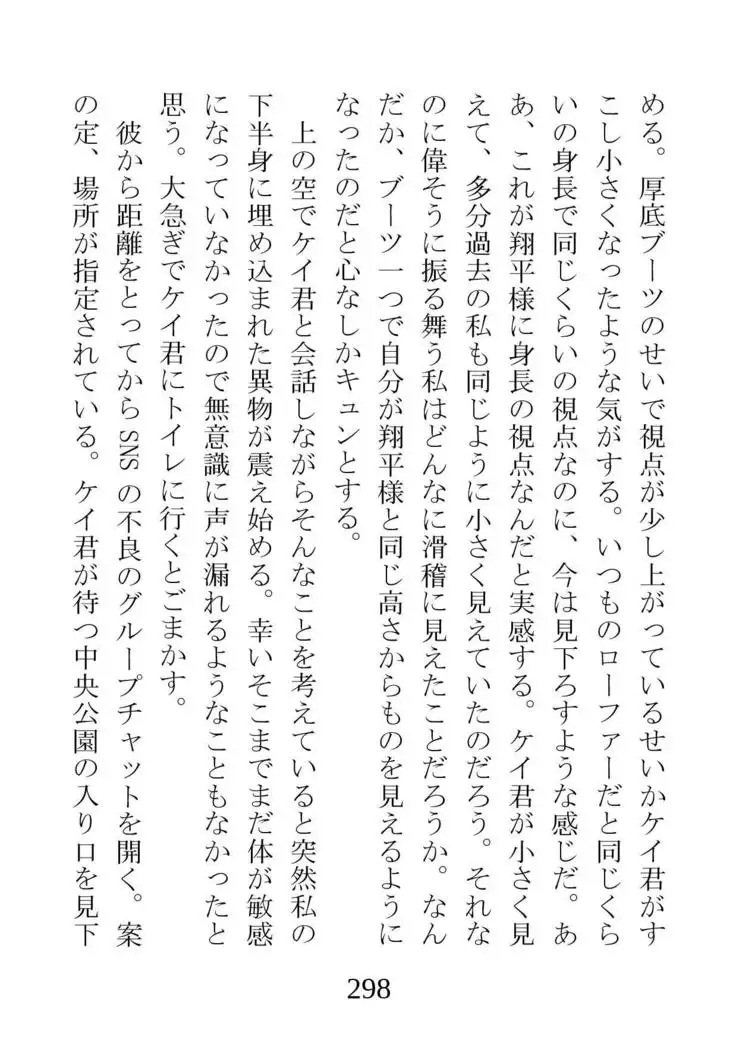 める。厚底ブーツのせいで視点が少し上がっているせいかケイ君がす
こし小さくなったような気がする。いつものローファーだと同じくら
いの身長で同じくらいの視点なのに、今は見下ろすような感じだ。あ
あ、これが翔平様に身長の視点なんだと実感する。ケイ君が小さく見
えて、多分過去の私も同じように小さく見えていたのだろう。それな
のに偉そうに振る舞う私はどんなに滑稽に見えたことだろうか。なん
だか、ブーツ一つで自分が翔平様と同じ高さからものを見えるように
なったのだと心なしかキュンとする。
上の空でケイ君と会話しながらそんなことを考えていると突然私の
下半身に埋め込まれた異物が震え始める。幸いそこまでまだ体が敏感
になっていなかったので無意識に声が漏れるようなこともなかったと
思う。大急ぎでケイ君にトイレに行くとごまかす。
彼から距離をとってから SNS の不良のグループチャットを開く。案
の定、場所が指定されている。ケイ君が待つ中央公園の入り口を見下
298